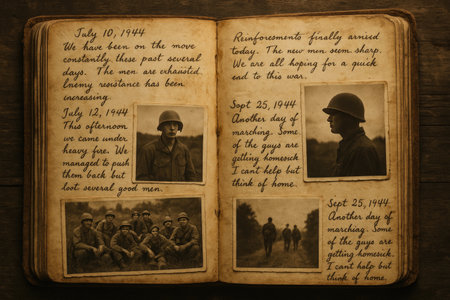 July 10, 1944
We have been on the move
constantly these past several
days. The men are exhausted.
Enemy resistance has been
increasing.
July 12, 1944
This afternoon
we came under
heavy fire. We
managed to push
them back but
lost several good men.
Reinforesments finally arnied
today. The new men seem sharp.
We are all hoping for a quick
ead to this war.
Sopt 25, 1944
Another day of
marching. Some
of the guys are
getling homesick
I cant help but
think of home.
Sept 25, 1944
Another day of
marchiag. Some
of the guys are
getting homesick.
I cant help but
think of home.